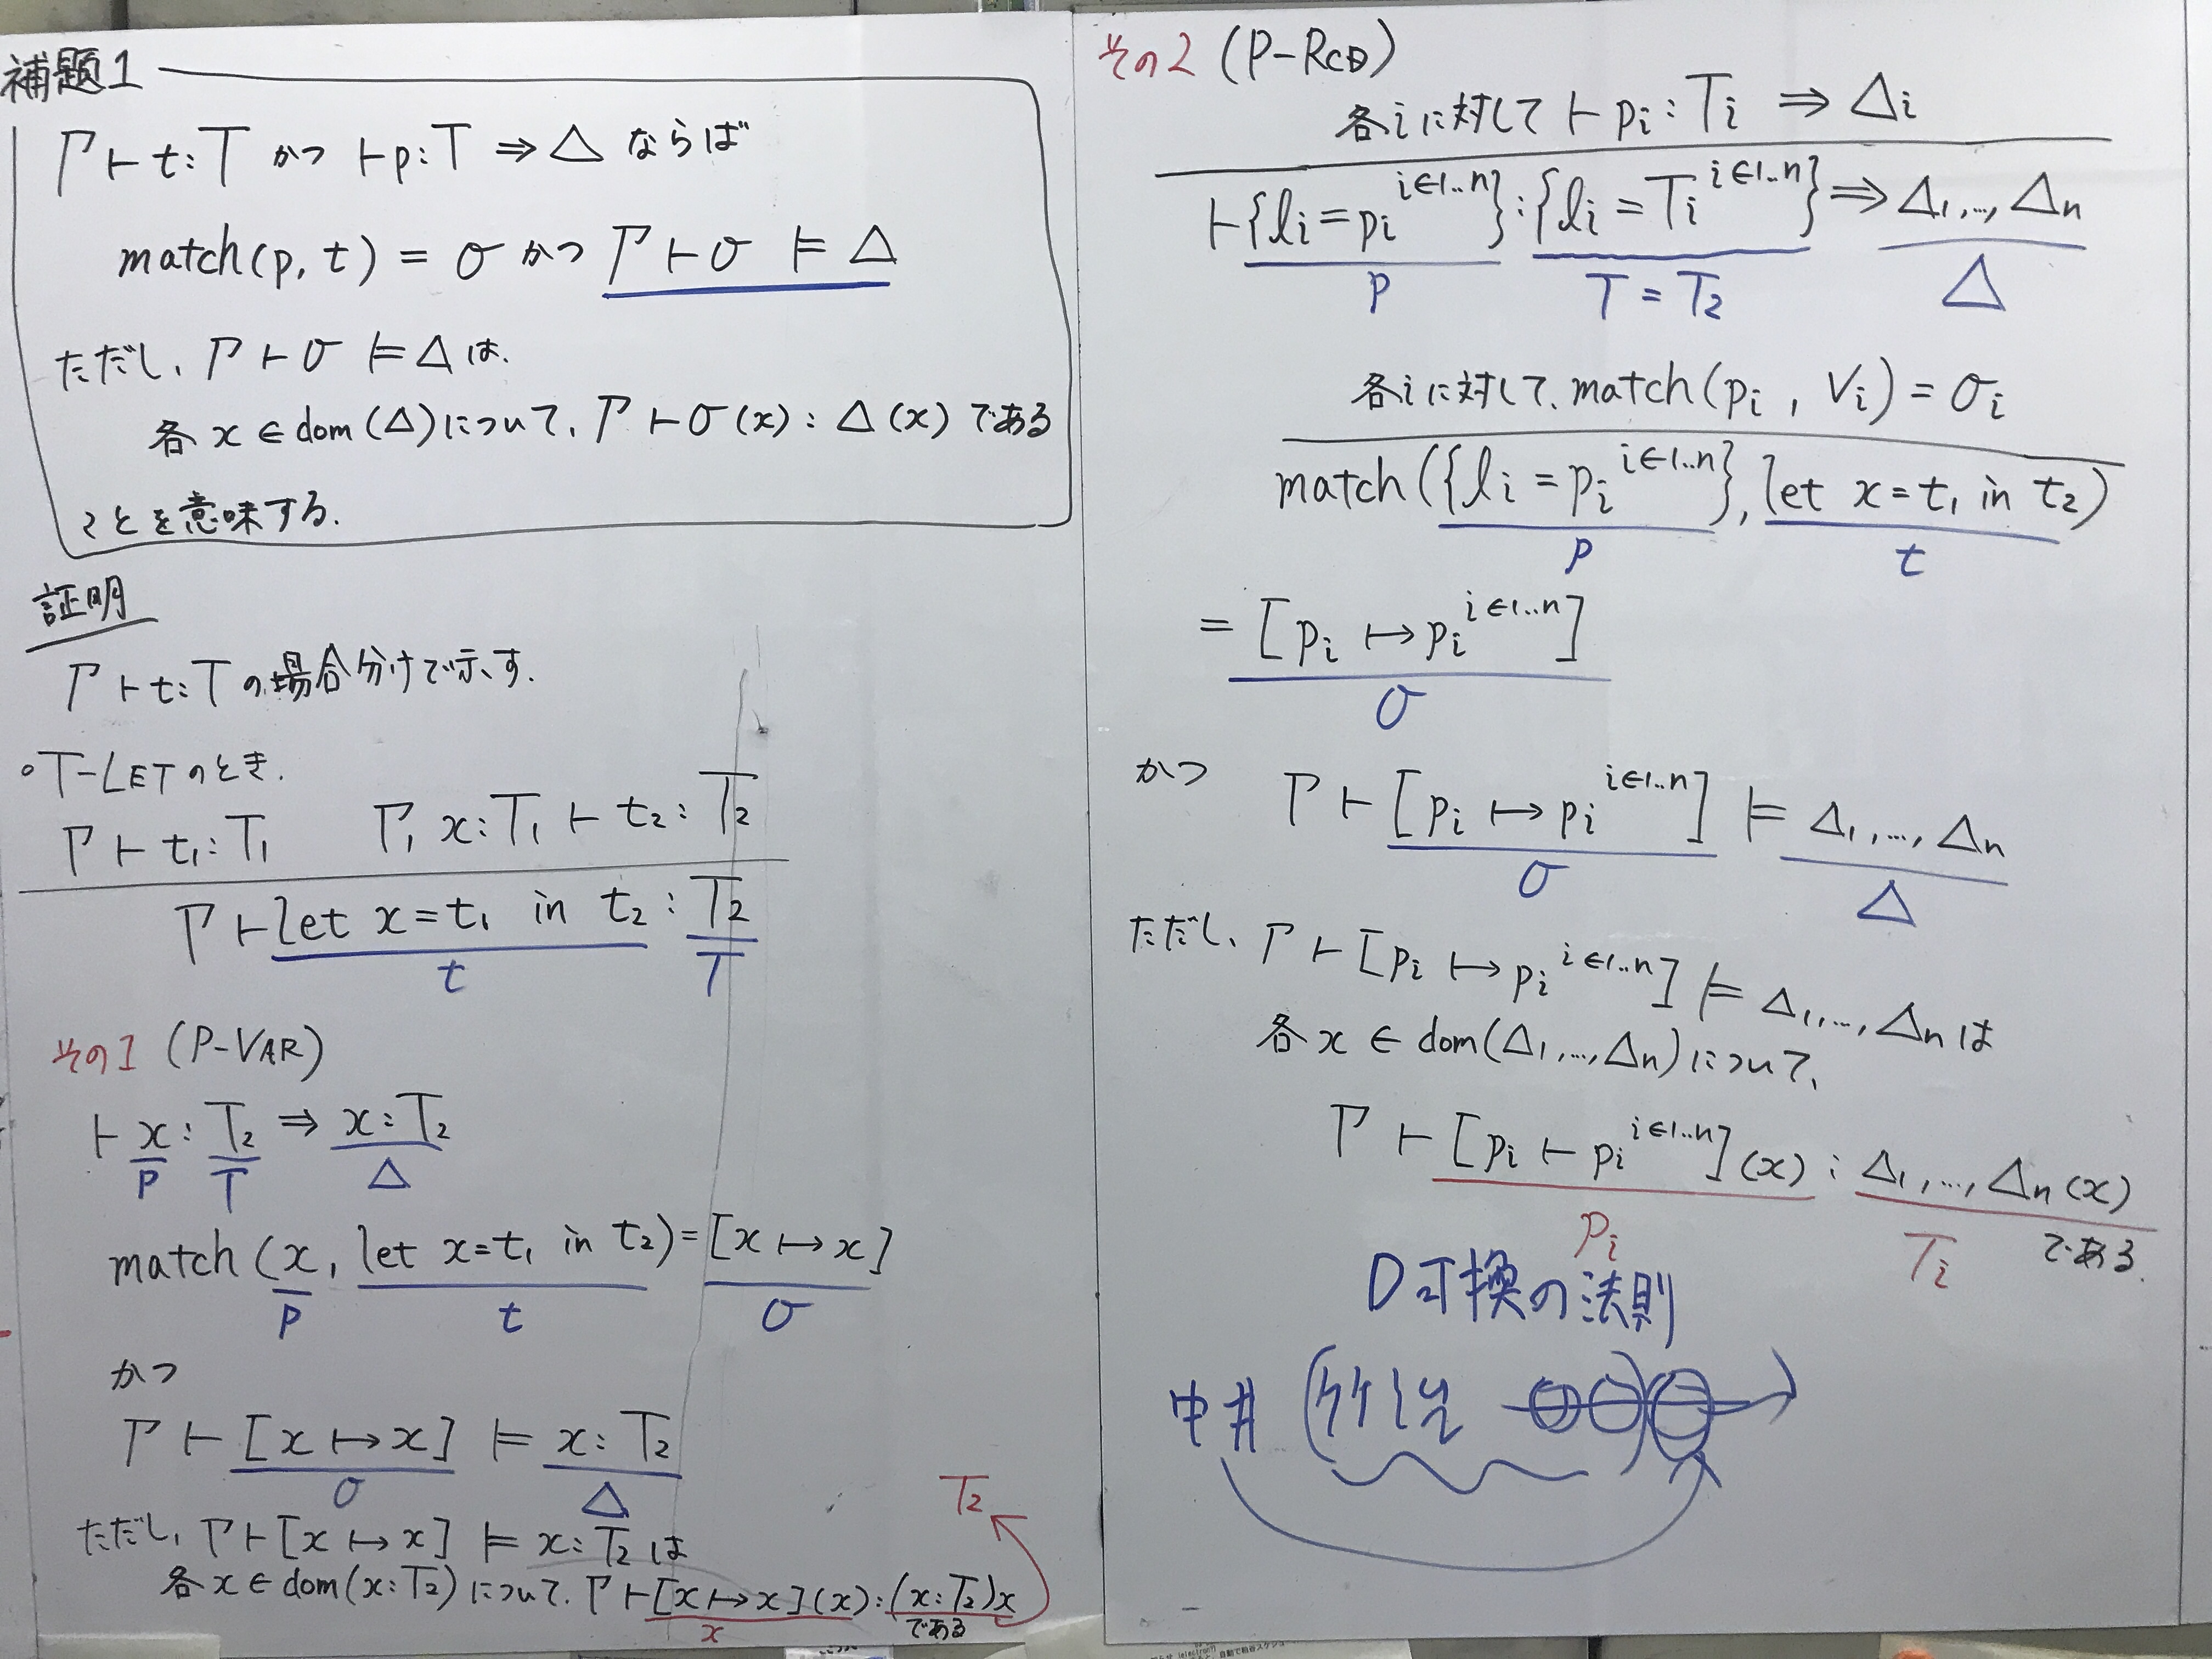 補題1
Γ ⊢ t : T かつ ⊢ p : T ⇒ Δ ならば
match(p, t) = σ かつ Γ ⊢ σ ⊨ Δ
ただし、Γ ⊢ σ ⊨ Δ は、
各 x ∈ dom(Δ) について、Γ ⊢ σ(x) : Δ(x) である
ことを意味する.
証明
Γ ⊢ t : T の場合分けで示す.
○T-LETのとき.
Γ ⊢ t₁ : T₁ Γ, x : T₁ ⊢ t₂ : T₂
Γ ⊢ let x = t₁ in t₂ : T₂
t T
その1 (P-VAR)
⊢ x : T₂ ⇒ x : T₂
p T Δ
match (x, let x = t₁ in t₂) = [x ↦ x]
p t σ
かつ
Γ ⊢ [x ↦ x] ⊨ x : T₂
σ Δ
T₂
ただし、Γ ⊢ [x ↦ x] ⊨ x : T₂ は
各 x ∈ dom(x : T₂) について、Γ ⊢ [x ↦ x](x) : (x : T₂)x
x である
その2 (P-RCD)
各iに対して ⊢ pᵢ : Tᵢ ⇒ Δᵢ
⊢ {lᵢ = pᵢ i∈1..n} : {lᵢ = Tᵢ i∈1..n} ⇒ Δ₁, …, Δn
p T = T₂ Δ
各iに対して、match(pᵢ, Vᵢ) = σᵢ
match({lᵢ = pᵢ i∈1..n}, let x = t₁ in t₂)
p t
= [pᵢ ↦ pᵢ i∈1..n]
σ
かつ Γ ⊢ [pᵢ ↦ pᵢ i∈1..n] ⊨ Δ₁, …, Δn
σ Δ
ただし、Γ ⊢ [pᵢ ↦ pᵢ i∈1..n] ⊨ Δ₁, …, Δn は
各 x ∈ dom(Δ₁, …, Δn) について、
Γ ⊢ [pᵢ ⊢ pᵢ i∈1..n](x) : Δ₁, …, Δn(x)
pᵢ Tᵢ である.
可換の法則
中井